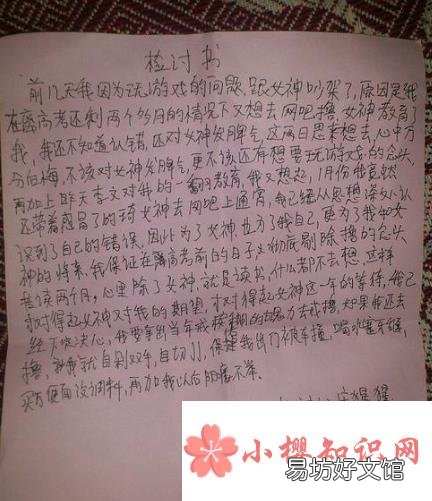 检讨书
前几天我因为玩游戏的问题,跟女神吵架了,原因是我
在离高考还剩两个多月的情况下又想去网吧撸,女神教育了
我,我还不知道认错,还对女神发脾气,这两日思来想去,心中万
分后悔,不该对女神发脾气,更不该还有想要玩游戏的念头,
再加上昨天李文对我的一翻教育,我又想起,1月份我竟然
还带着感冒了的琦女神去网吧上通宵,我已经从思想深处认
识到了自己的错误,因此为了女神也为了我自己,更为了我和女
神的将来,我保证在离高考前的日子必彻底剔除撸的念头
接读两个月,心里除了女神,就是读书,什么都不去想,这样
才对得起女神对我的期望,才对得起女神这一年的等待,我已
经下定决心,我要拿出当年我 的 力去戒撸,如果我还去
撸,我就自剁双手,自切JJ,保 我出门被车撞,喝水塞牙缝,
买方便面没调料,再加我以后阳痿不举。
小樱知识网
易坊好文馆